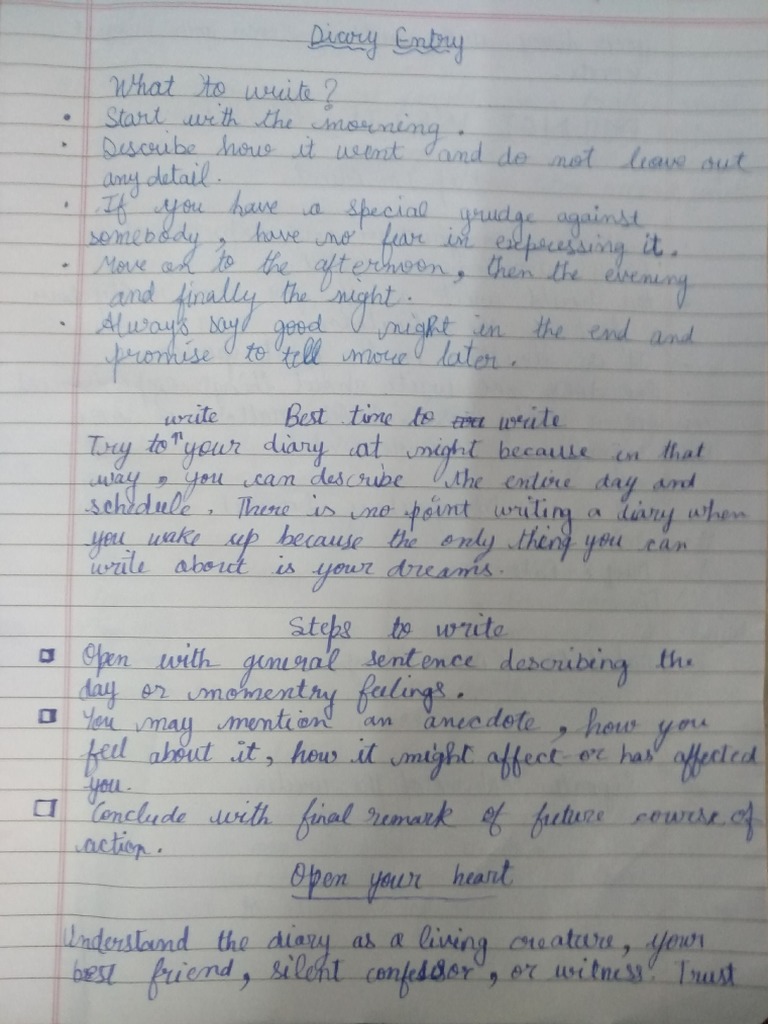 Diary Entry
What to write?
• Start with the morning.
• Describe how it went and do not leave out
any detail.
• If you have a special grudge against
somebody, have no fear in expressing it.
• Move on to the afternoon, then the evening
and finally the night.
• Always say good night in the end and
promise to tell more later.
Best time to write
Try to write your diary at night because in that
way, you can describe the entire day and
schedule. There is no point writing a diary when
you wake up because the only thing you can
write about is your dreams.
Steps to write
Open with general sentence describing the
day or momentry feelings.
You may mention an anecdote, how you
feel about it, how it might affect or has affected
you.
Conclude with final remark of future course of
action.
Open your heart
Understand the diary as a living creature, your
best friend, silent confessor, or witness. Trust